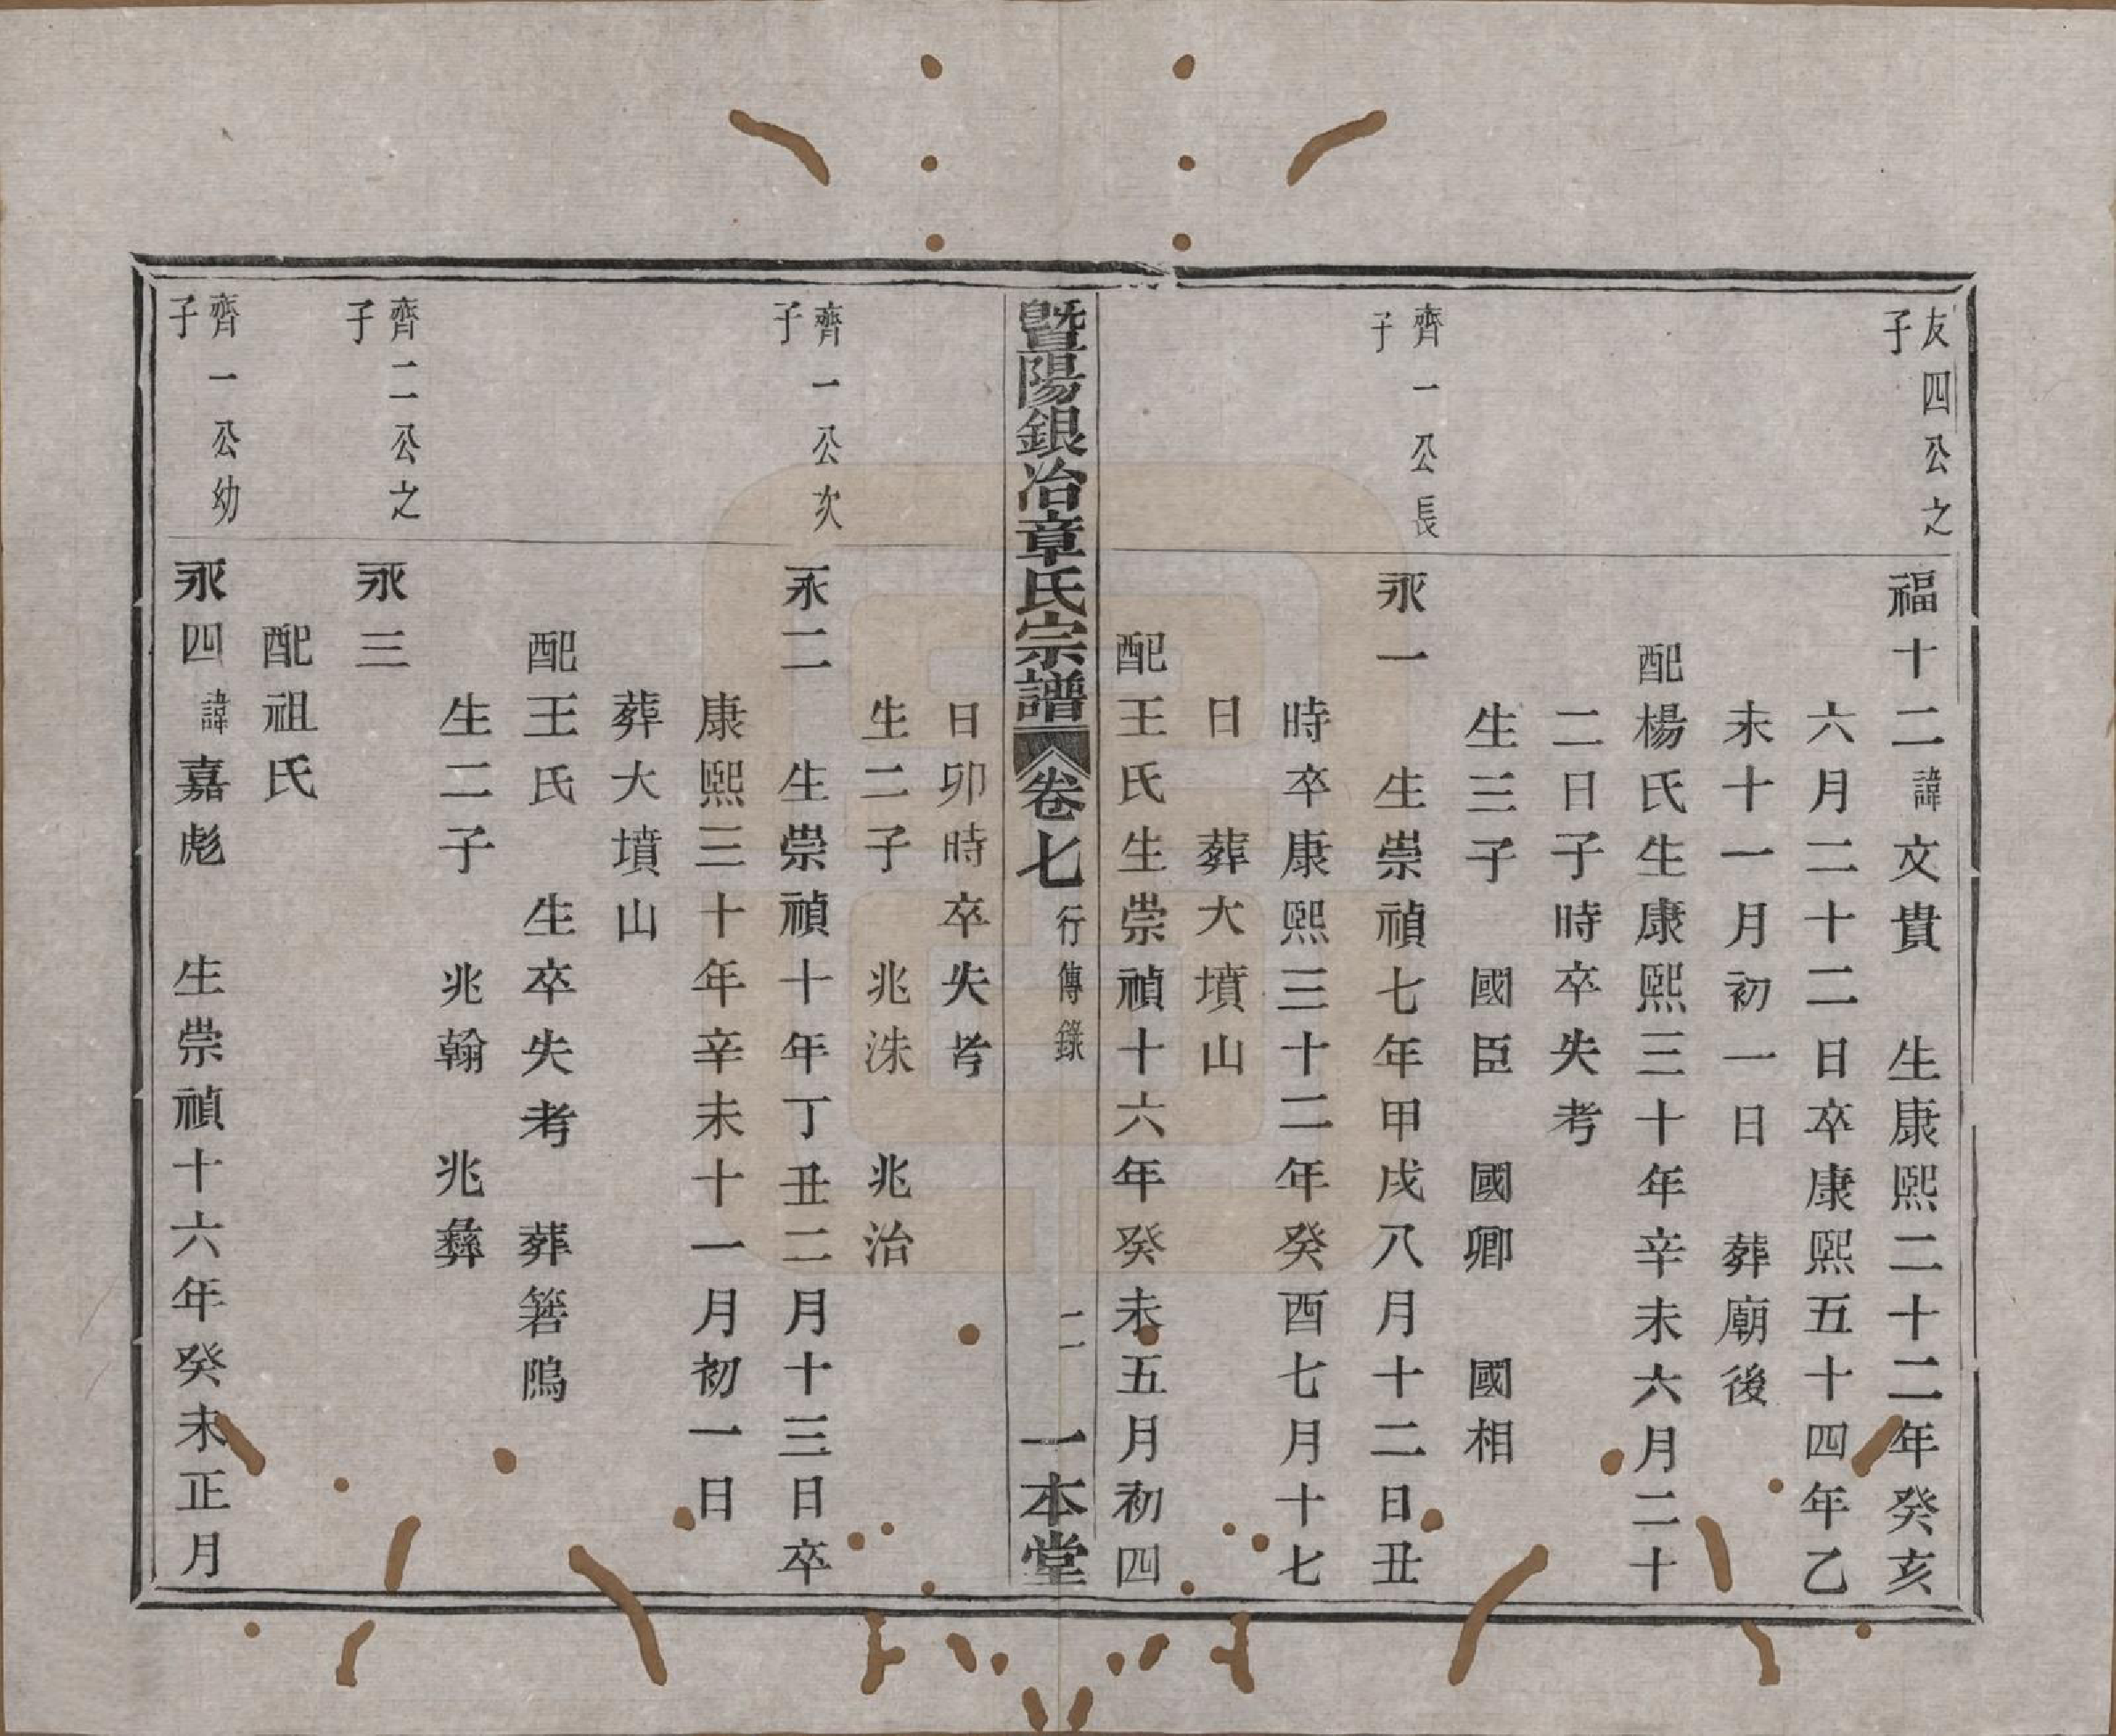 友四公之
子
福十二諱文貴　生康熙二十二年癸亥
六月二十二日卒康熙五十四年乙
未十一月初一日　葬廟後
配楊氏生康熙三十年辛未六月二十
二日子時卒失考
生三子　國臣　國卿　國相
齊一公長
子
永一　生崇禎七年甲戌八月十二日丑
時卒康熙三十二年癸酉七月十七
日　葬大墳山
配王氏生崇禎十六年癸未五月初四
暨陽銀冶章氏宗譜　卷七　行傳錄　二　一本堂
日卯時卒失考
生二子　兆洙　兆治
齊一公次
子
永二　生崇禎十年丁丑二月十三日卒
康熙三十年辛未十一月初一日
葬大墳山
配王氏　生卒失考　葬箬隖
生二子　兆翰　兆彝
齊二公之
子
永三
配祖氏
齊一公幼
子
永四諱嘉彪　生崇禎十六年癸未正月